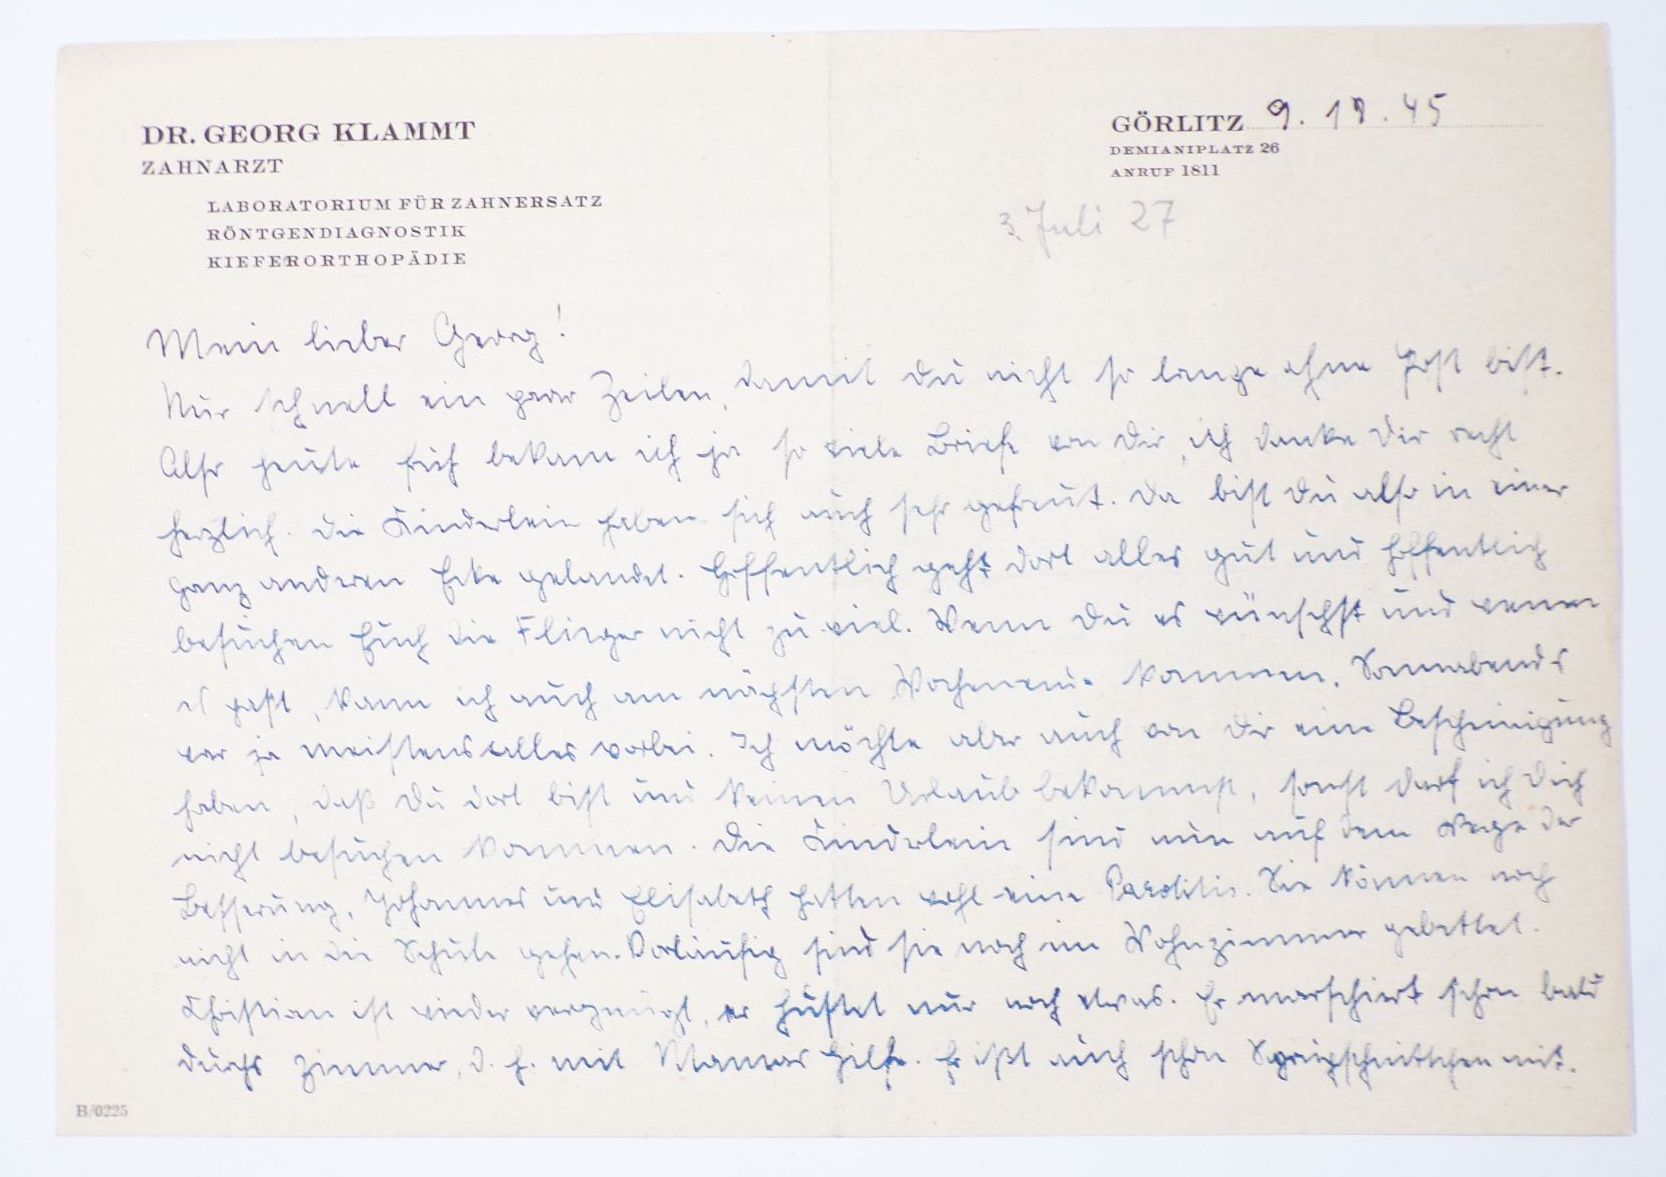 DR. GEORG KLAMMT
ZAHNARZT
LABORATORIUM FÜR ZAHNERSATZ
RÖNTGENDIAGNOSTIK
KIEFERORTHOPÄDIE
GÖRLITZ 9. 1 . 45
DEMIANIPLATZ 26
ANRUF 1811
3. Juli 27
Mein lieber Georg!
Nur schnell ein paar Zeilen, damit du nicht so lange ohne Post bist.
Also heute früh bekam ich ja so viele Briefe von Dir, ich danke Dir recht
herzlich. Die Kinderlein haben sich auch sehr gefreut. Da bist Du also in einer
ganz anderen Ecke gelandet. Hoffentlich geht dort alles gut und hoffentlich
besuchen Euch die Flieger nicht zu viel. Wenn Du es wünschst und wenn
es paßt, kann ich auch am nächsten Wochenende kommen. Sonnabends
war ja meistens alles vorbei. Ich möchte aber auch von Dir eine Bescheinigung
haben, daß Du dort bist und keinen Urlaub bekommst, sonst darf ich Dich
nicht besuchen kommen. Die Kinderlein sind nun auf dem Wege der
Besserung, Johannes und Elisabeth hatten wohl eine Parotitis. Sie können noch
nicht in die Schule gehen. Vorläufig sind sie noch im Wohnzimmer gebettet.
Christian ist wieder vergnügt, er hustet nur noch etwas. Er marschiert schon bald
durchs Zimmer, d. h. mit Mamas Hilfe. Er ißt auch schon mit.
B/0225